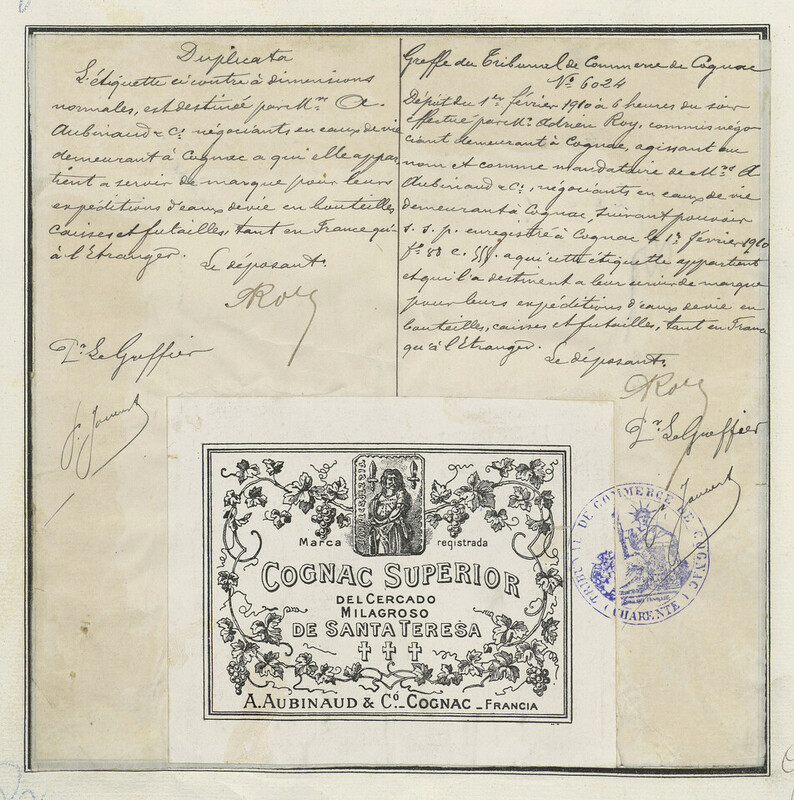 Duplicata
L'étiquette ci contre à dimensions
normales, est destinée par Mrs A.
Aubinaud & Co. négociants en eaux de vie
demeurant à Cognac a qui elle appar
tient a servir de marque pour leurs
expéditions d'eaux de vie en bouteilles
caisses et futailles, tant en France qu'
à l'Etranger.
Le déposant.
ARoy
Pr Le Greffier
Greffe du Tribunal de Commerce de Cognac
No 6024
Dépôt du 1er février 1910 à 6 heures du soir
Effectué par Mr Adrien Roy, commis négo
ciant demeurant à Cognac, agissant au
nom et comme mandataire de Mrs A
Aubinaud & Co., négociants en eaux de vie
demeurant à Cognac, suivant pouvoir
s. s. p. enregistré à Cognac le 1er février 1910
fo 88 c. a qui cette étiquette appartient
et qui l'a destinent a leur servir de marque
pour leurs expéditions d'eaux de vie en
bouteilles, caisses et futailles, tant en Franc
qu'à l'Etranger.
Le déposant.
ARoy
Pr Le Greffier
Marca registrada
COGNAC SUPERIOR
DEL CERCADO
MILAGROSO
DE SANTA TERESA
A. AUBINAUD & Co. COGNAC - FRANCIA
TRIBUNAL DE COMMERCE DE COGNAC
(CHARENTE)